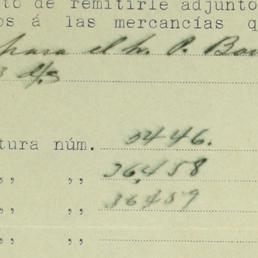 to de remitirle adjunto
os á las mercancías q
para el Sr. P. Bou
3 d/s
tura núm. 3446.
,, ,, 36,458
,, ,, 36459
,, ,,